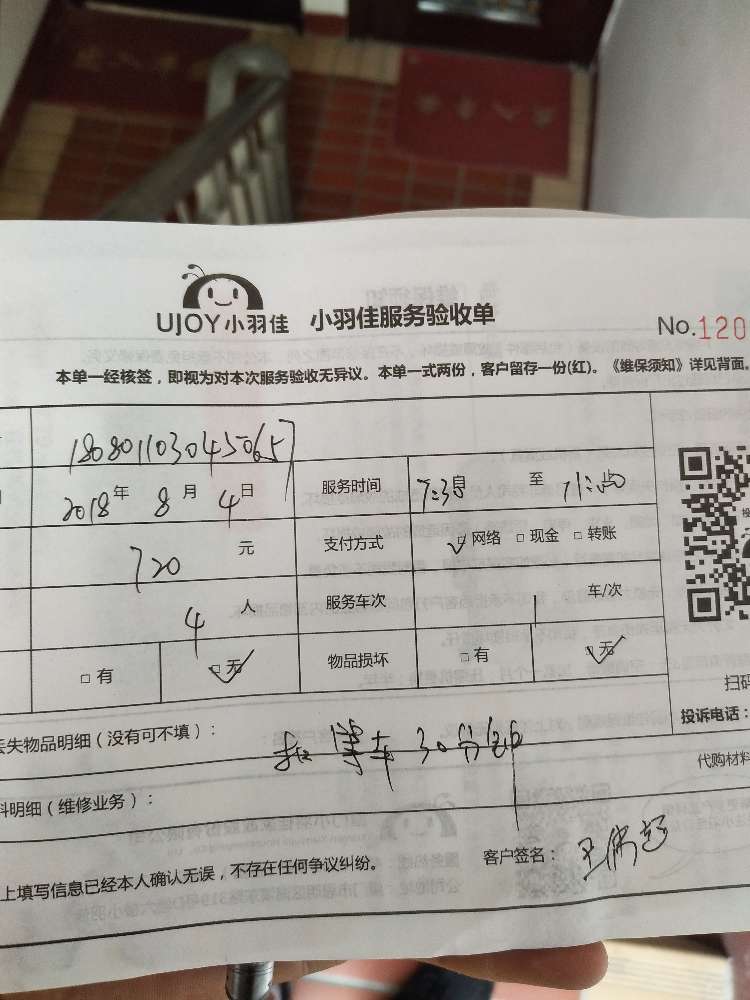 UJOY小羽佳 小羽佳服务验收单 No.120
本单一经核签，即视为对本次服务验收无异议。本单一式两份，客户留存一份(红)。《维保须知》详见背面。
1808011030450657
2018年 8月 4日 服务时间 至
720 元 支付方式 网络 现金 转账
4 人 服务车次 1 车/次
有 无 物品损坏 有 无
扫码
失物品明细（没有可不填）： 30分钟 投诉电话：
料明细（维修业务）： 代购材料
上填写信息已经本人确认无误，不存在任何争议纠纷。 客户签名：